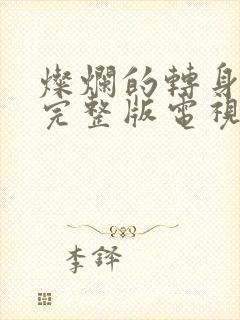 燦爛的轉身
完整版電視
李鐸